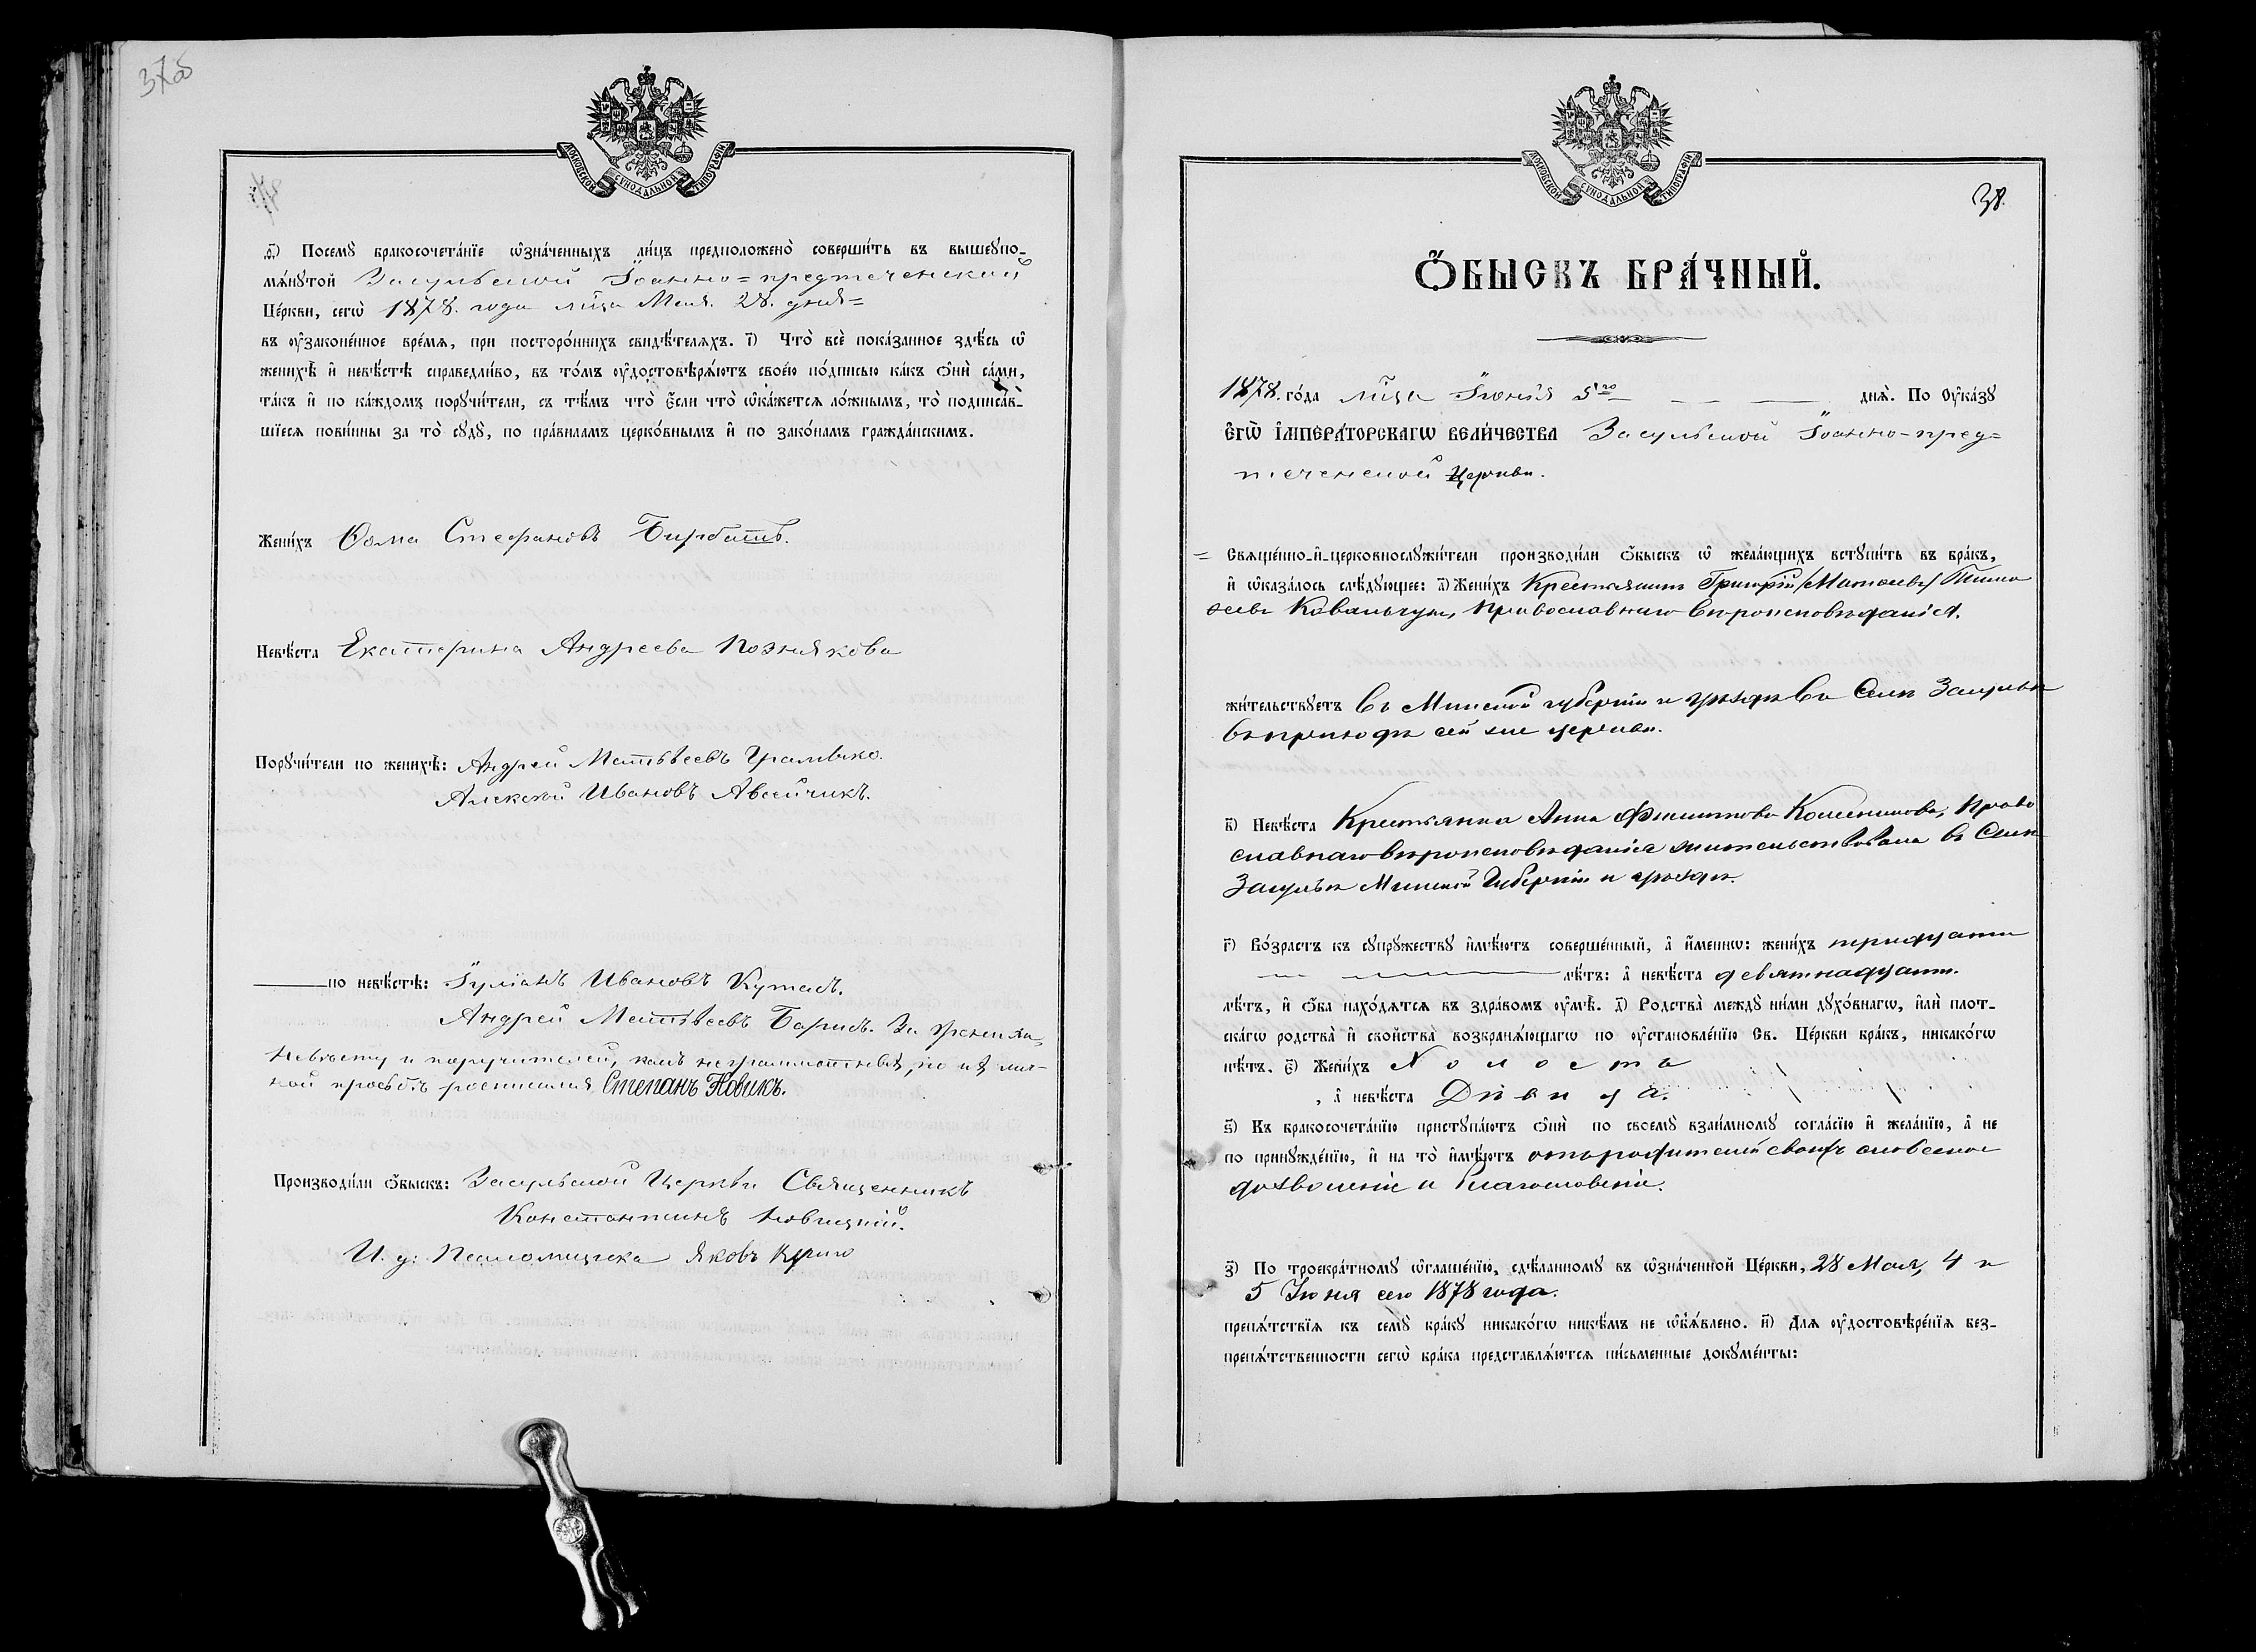 37об
МОСКОВСКОЙ СѴНОДАЛЬНОЙ ТИПОГРАФІИ
ѳ҃) Посемꙋ̀ бракосочета́нїе ѡ҆зна́ченныхъ ли́цъ предположено̀ соверши́ть въ вышеꙋпо-
мѧ́нꙋтой Засульской Іоанно=предтеченской
Це́ркви, сегѡ̀ 1878. года мѣ́сяца Мая. 28. дня=
въ ᲂу҆законе́нное вре́мѧ, при посторо́ннихъ свидѣ́телѧхъ. і҃) Что̀ всѐ пока́занное здѣ́сь ѡ҆
женихѣ̀ и҆ невѣ́стѣ справедли́во, въ то́мъ ᲂу҆достовѣрѧ́ютъ свое́ю по́дписью ка́къ ѻ҆нѝ са́ми,
та́къ и҆ по ка́ждомъ порꙋчи́тели, съ тѣ́мъ что̀ є҆́сли что̀ ѡ҆ка́жетсѧ ло́жнымъ, то̀ подписа́в-
шїесѧ пови́нны за то̀ сꙋдꙋ̀, по пра́виламъ церко́внымъ и҆ по зако́намъ гражда́нскимъ.
Жени́хъ Ѳома Стефановъ
Невѣ́ста Екатерина Андреева Познякова
Порꙋчи́тели по женихѣ̀: Андрей Матвѣевъ Грамыко.
Алексѣй Ивановъ Авсейчикъ.
по невѣ́стѣ: Іуліанъ Ивановъ
Андрей Матвѣевъ Борисъ. За жениха,
невѣсту и поручителей, какъ неграмотныхъ, по ихъ лич-
ной просьбѣ росписался Степанъ Новикъ.
Производи́ли ѻ҆́быскъ: Засульской Церкви Священникъ
Константинъ Новицкій.
И. д: Псаломщика Яковъ
МОСКОВСКОЙ СѴНОДАЛЬНОЙ ТИПОГРАФІИ
38.
Ѻ҆́БЫСКЪ БРА́ЧНЫЙ.
1878. го́да мѣ́сяца Іюнія 5го днѧ̀. По Оу҆ка́зꙋ
Є҆ГѠ̀ І҆МПЕРА́ТОРСКАГѠ ВЕЛИ́ЧЕСТВА Засульской Іоанно-пред=
теченской Церкви.
Свѧще́нно-и҆-церковнослꙋжи́тели производи́ли ѻ҆́быскъ ѡ҆ жела́ющихъ встꙋпи́ть въ бра́къ,
и҆ ѡ҆каза́лось слѣ́дꙋющее: а҃) Жени́хъ Крестьянинъ Григорій /Матѳеев/ Тимо
ѳеевъ Ковальчукъ, православнаго вѣроисповѣданія.
жи́тельствꙋетъ въ Минской губерніи и уѣздѣ въ Селѣ Засульѣ
въ приходѣ сей же церкви.
в҃) Невѣ́ста Крестьянка Анна Филиппова, право
славнаго вѣроисповѣданія жительствовала въ Селѣ
Засульѣ Минской Губерніи и уѣздѣ.
г҃) Во́зрастъ къ сꙋпрꙋ́жествꙋ и҆мѣ́ютъ соверше́нный, а҆ и҆́менно: жени́хъ тридцати
лѣ́тъ: а҆ невѣ́ста девятнадцати.
лѣ́тъ, и҆ ѻ҆́ба нахо́дѧтсѧ въ здра́вомъ ᲂу҆мѣ̀. д҃) Родства̀ междꙋ̀ ни́ми дꙋхо́внагѡ, и҆лѝ плот-
ска́гѡ родства̀ и҆ сво́йства̀ возбранѧ́ющагѡ по ᲂу҆становле́нїю Св. Це́ркви бра́къ, никако́гѡ
нѣ́тъ. є҃) Жени́хъ Холостъ
, а҆ невѣ́ста Дѣвица.
ѕ҃) Къ бракосочета́нїю пристꙋпа́ютъ ѻ҆нѝ по своемꙋ̀ взаи́мномꙋ согла́сїю и҆ жела́нїю, а҆ не
по принꙋжде́нїю, и҆ на то̀ и҆мѣ́ютъ отъ родителей своихъ словесное
дозволеніе и благословеніе.
з҃) По троекра́тномꙋ ѡ҆глаше́нїю, сдѣ́ланномꙋ въ ѡ҆зна́ченной Це́ркви, 28 Мая, 4 и
5 Іюня сего 1878 года.
препѧ́тствїѧ къ семꙋ̀ бра́кꙋ никако́гѡ никѣ́мъ не ѡ҆б̾ѧ́влено. и҃) Длѧ ᲂу҆достовѣре́нїѧ без-
препѧ́тственности сегѡ̀ бра́ка представлѧ́ютсѧ пи́сьменные докꙋме́нты: